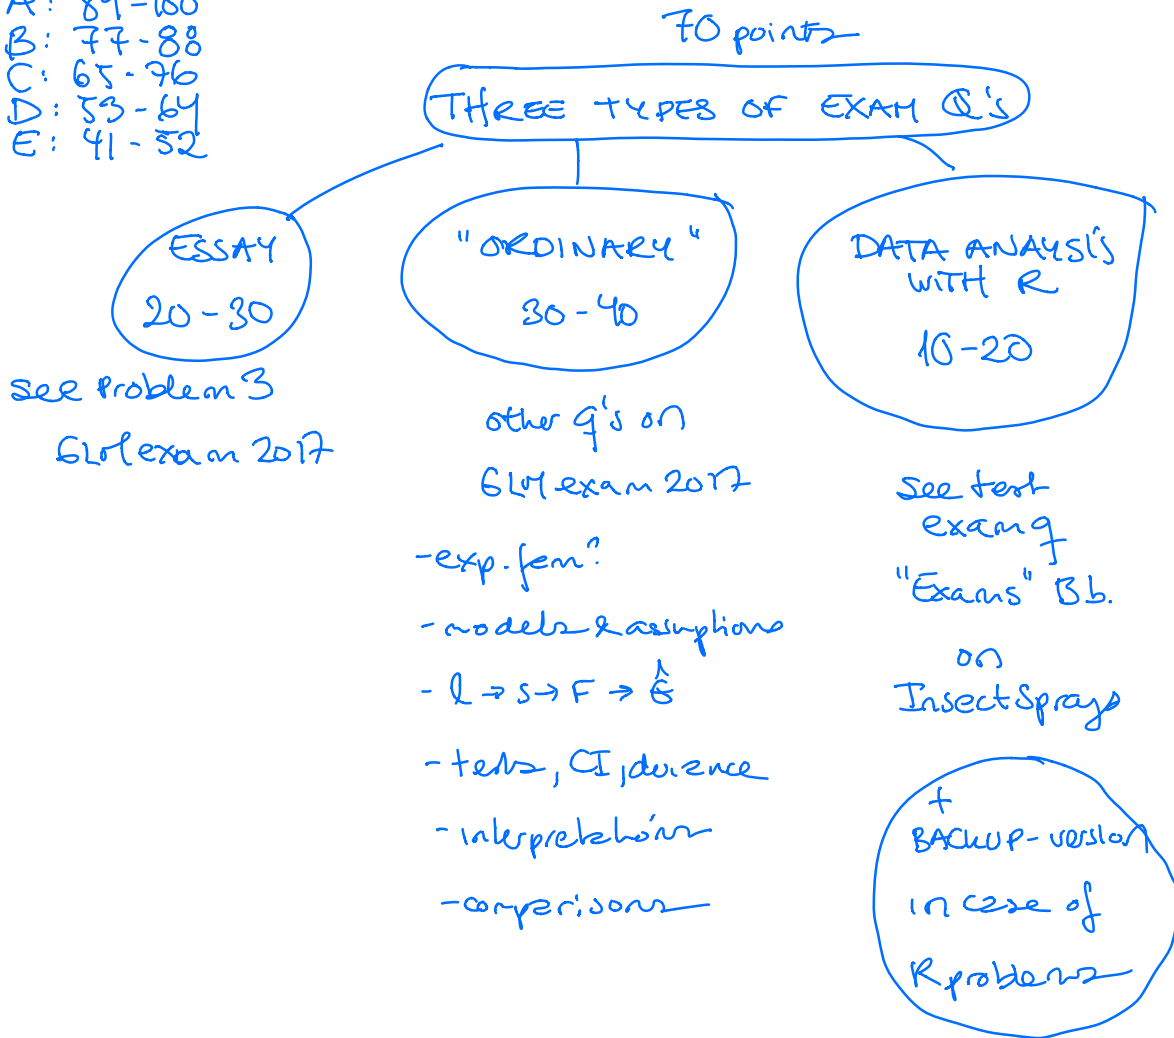 A: 89-100
B: 77-88
C: 65-76
D: 53-64
E: 41-52
70 points
THREE TYPES OF EXAM Q's
ESSAY
20-30
see Problem 3
GLM exam 2017
"ORDINARY"
30-40
other q's on
GLM exam 2017
- exp. fam?
- models & assumptions
- l → s → F → β̂
- tests, CI, deviance
- interpretations
- comparisons
DATA ANALYSIS
WITH R
10-20
see test
exam q
"Exams" Bb.
on
InsectSprays
+
BACKUP-version
in case of
R problems